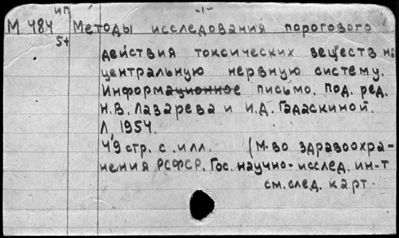 ип -1-
М 484 Методы исследования порогового
54 действия токсических веществ на
центральную нервную систему.
Информационное письмо. Под. ред.
Н.В. Лазарева и И.Д. Гадаскиной.
Л, 1954.
49 стр. с илл. (М-во здравоохра-
нения РСФСР. Гос. научно-исслед. ин-т
см. след. карт.